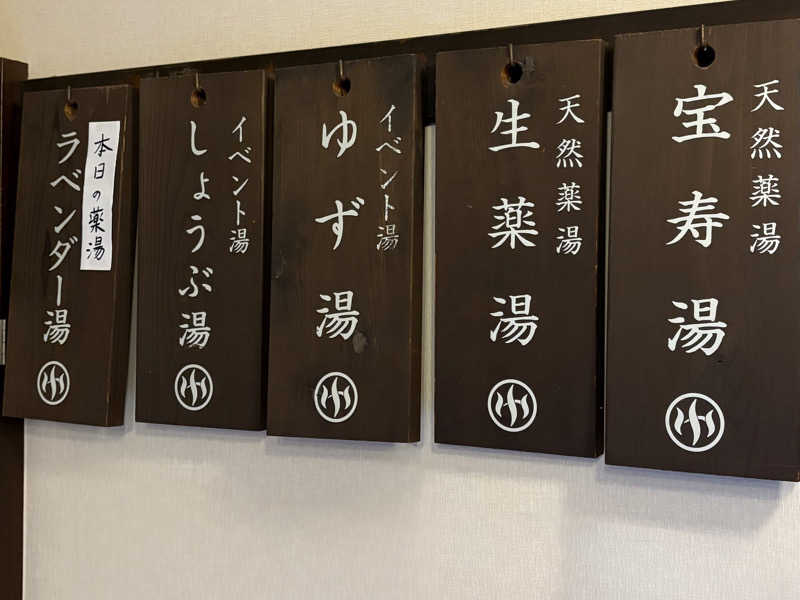 天然薬湯
宝寿湯
天然薬湯
生薬湯
イベント湯
ゆず湯
イベント湯
しょうぶ湯
本日の薬湯
ラベンダー湯